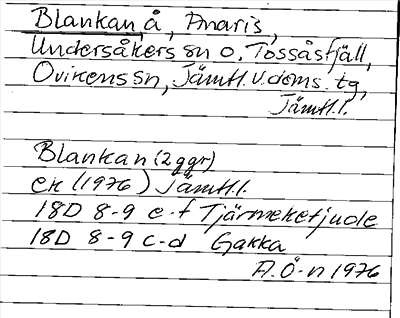 Blankan, å, Anaris,
Undersåkers sn o. Tossåsfjäll,
Ovikens sn, Jämtl. v. doms. tg,
Jämtl. l.
Blankan (2 ggr)
ek (1976) Jämtl. l.
18D 8-9 e-f Tjärmeketjuole
18D 8-9 c-d Gakka
A. Ö-n 1976